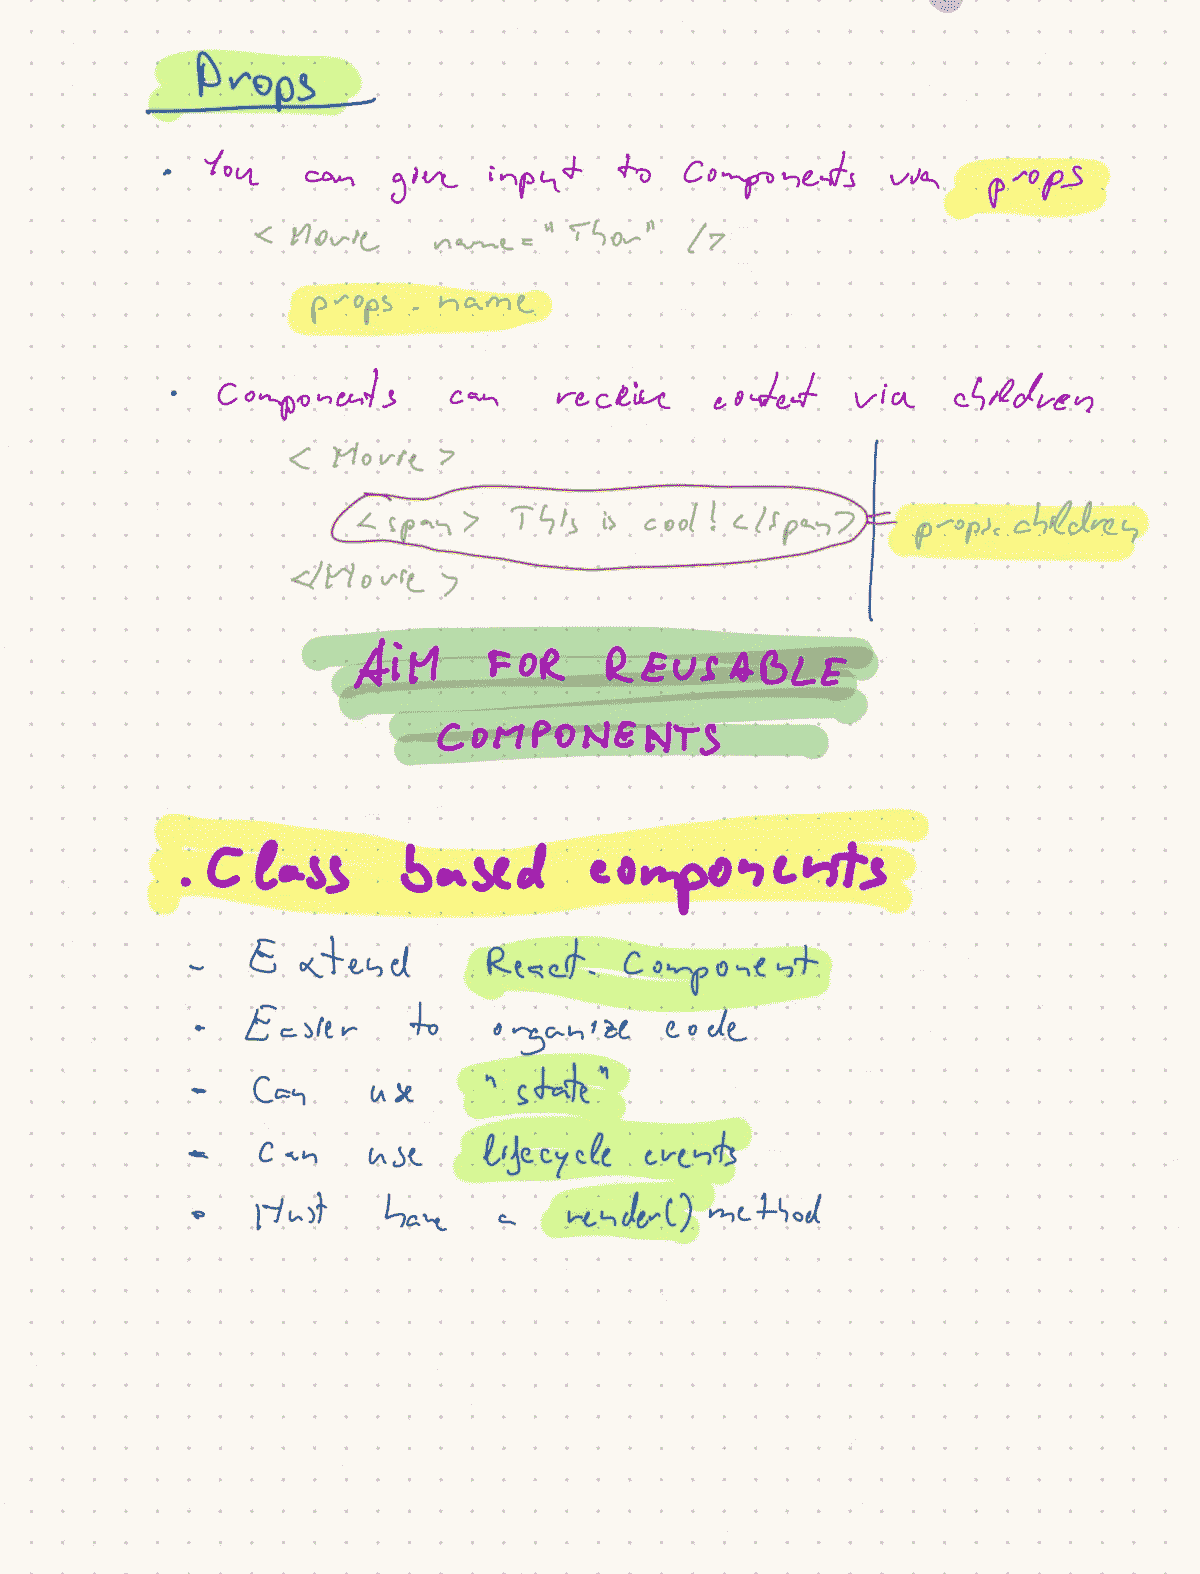 Props
• You can give input to Components via props
<Movie name="Thor" />
props.name
• Components can receive content via children
<Movie>
<span> This is cool! </span> = props.children
</Movie>
AiM FOR REUSABLE
COMPONENTS
. Class based components
- Extend React.Component
• Easier to organize code
- Can use "state"
- Can use lifecycle events
• Must have a render() method